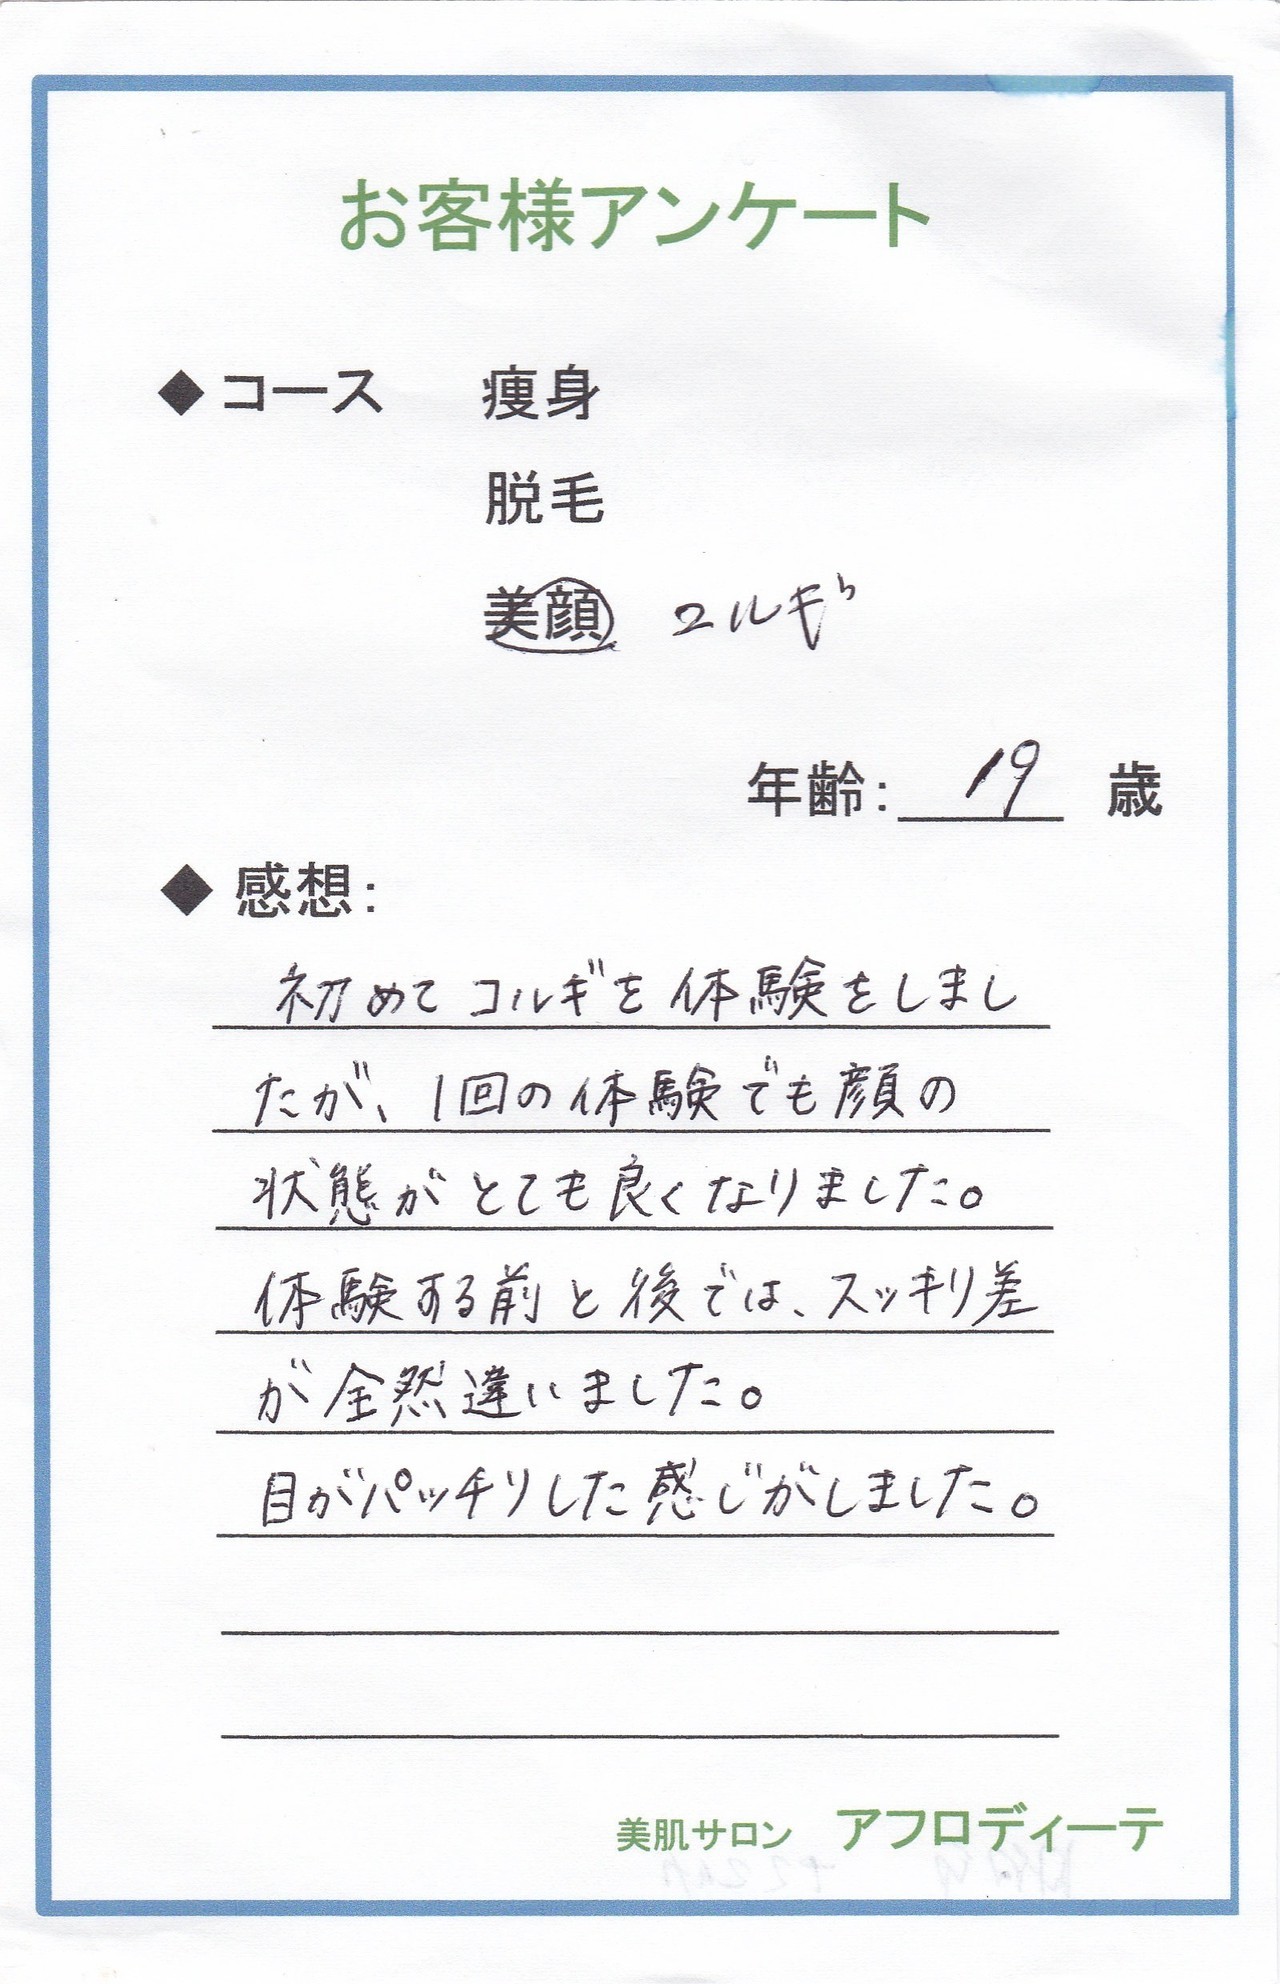 お客様アンケート
◆ コース 痩身
脱毛
美顔 コルギ
年齢: 19 歳
◆ 感想:
初めてコルギを体験をしまし
たが、1回の体験でも顔の
状態がとても良くなりました。
体験する前と後では、スッキリ差
が全然違いました。
目がパッチリした感じがしました。
美肌サロン アフロディーテ